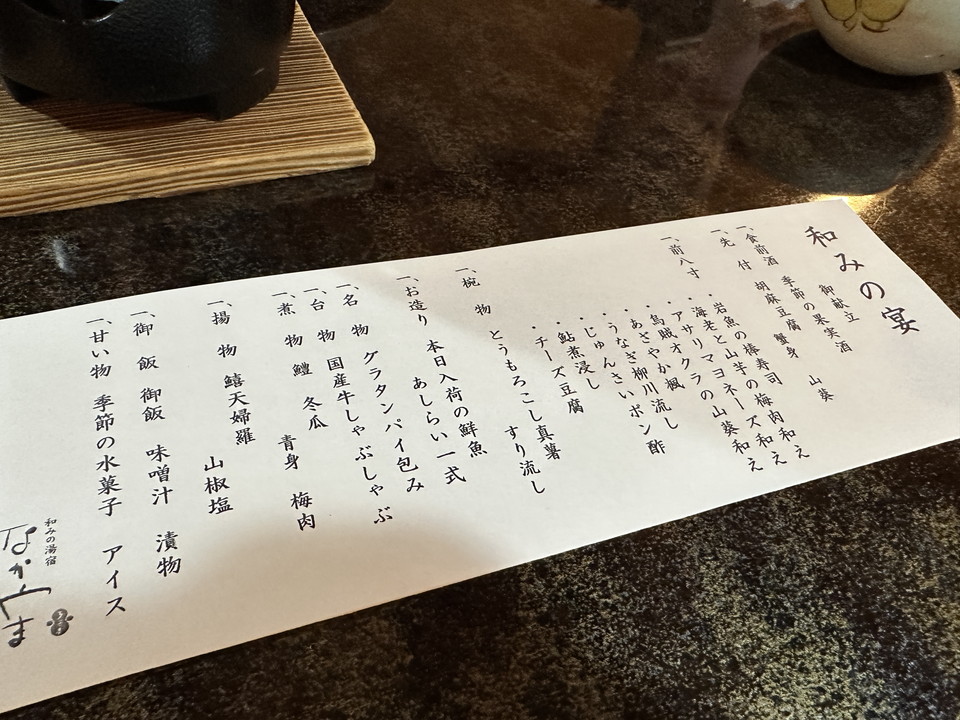 和みの宴
御献立
一、食前酒 季節の果実酒
一、先付 胡麻豆腐 蟹身 山葵
一、前八寸
・岩魚の棒寿司
・海老と山芋の梅肉和え
・アサリマヨネーズ和え
・烏賊オクラの山葵和え
・あさやか楓
・うなぎ柳川流し
・じゅんさいポン酢
・鮎煮浸し
・チーズ豆腐
一、椀物 とうもろこし真薯
すり流し
一、お造り 本日入荷の鮮魚
あしらい一式
一、名物 グラタンパイ包み
一、台物 国産牛しゃぶしゃぶ
一、煮物 鱧 冬瓜 青身 梅肉
一、揚物 鱚天婦羅 山椒塩
一、御飯 御飯 味噌汁 漬物
一、甘い物 季節の水菓子 アイス
和みの湯宿
なかやま